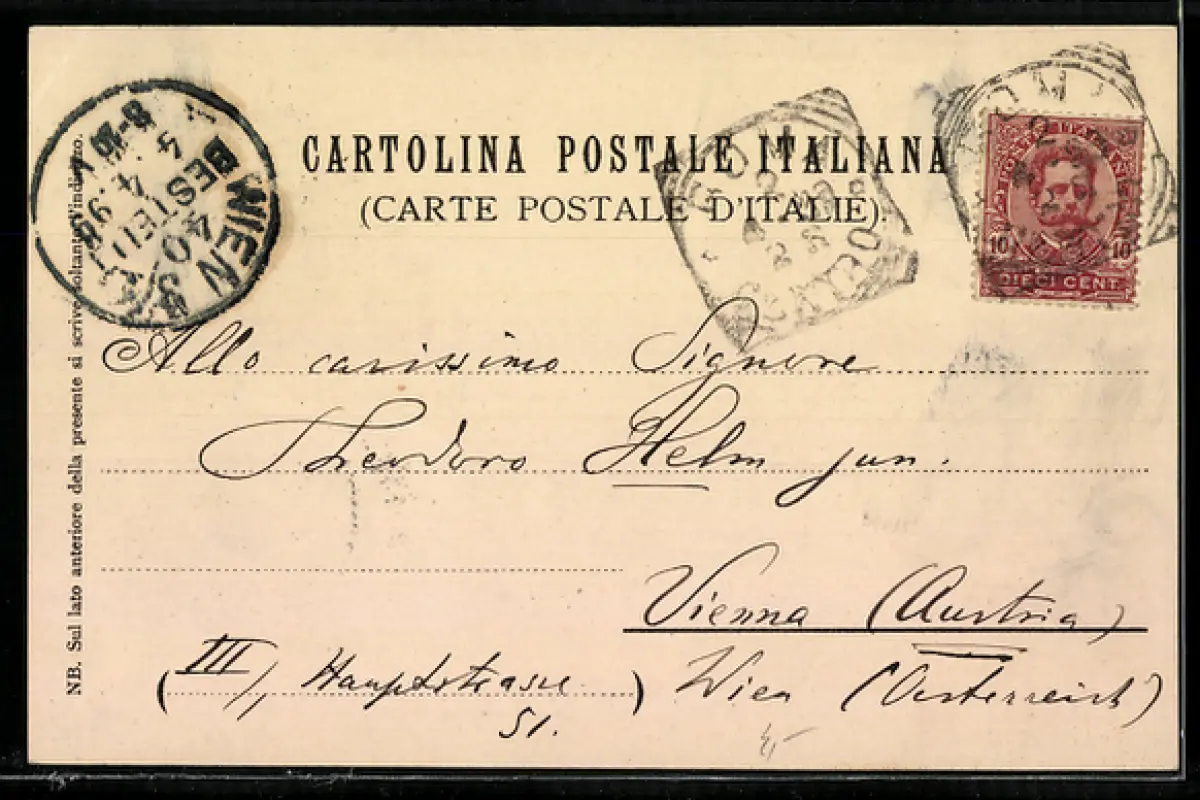 CARTOLINA POSTALE ITALIANA
(CARTE POSTALE D'ITALIE).
WIEN
BESTELLT
ROMA
POSTE ITALIANE
10 10
DIECI CENT.
Allo carissimo Signore
Theodoro Helm jun.
Vienna (Austria)
(III/, Hauptstrasse) Wien (Oesterreich)
51.
NB. Sul lato anteriore della presente si scrive soltanto l'indirizzo.